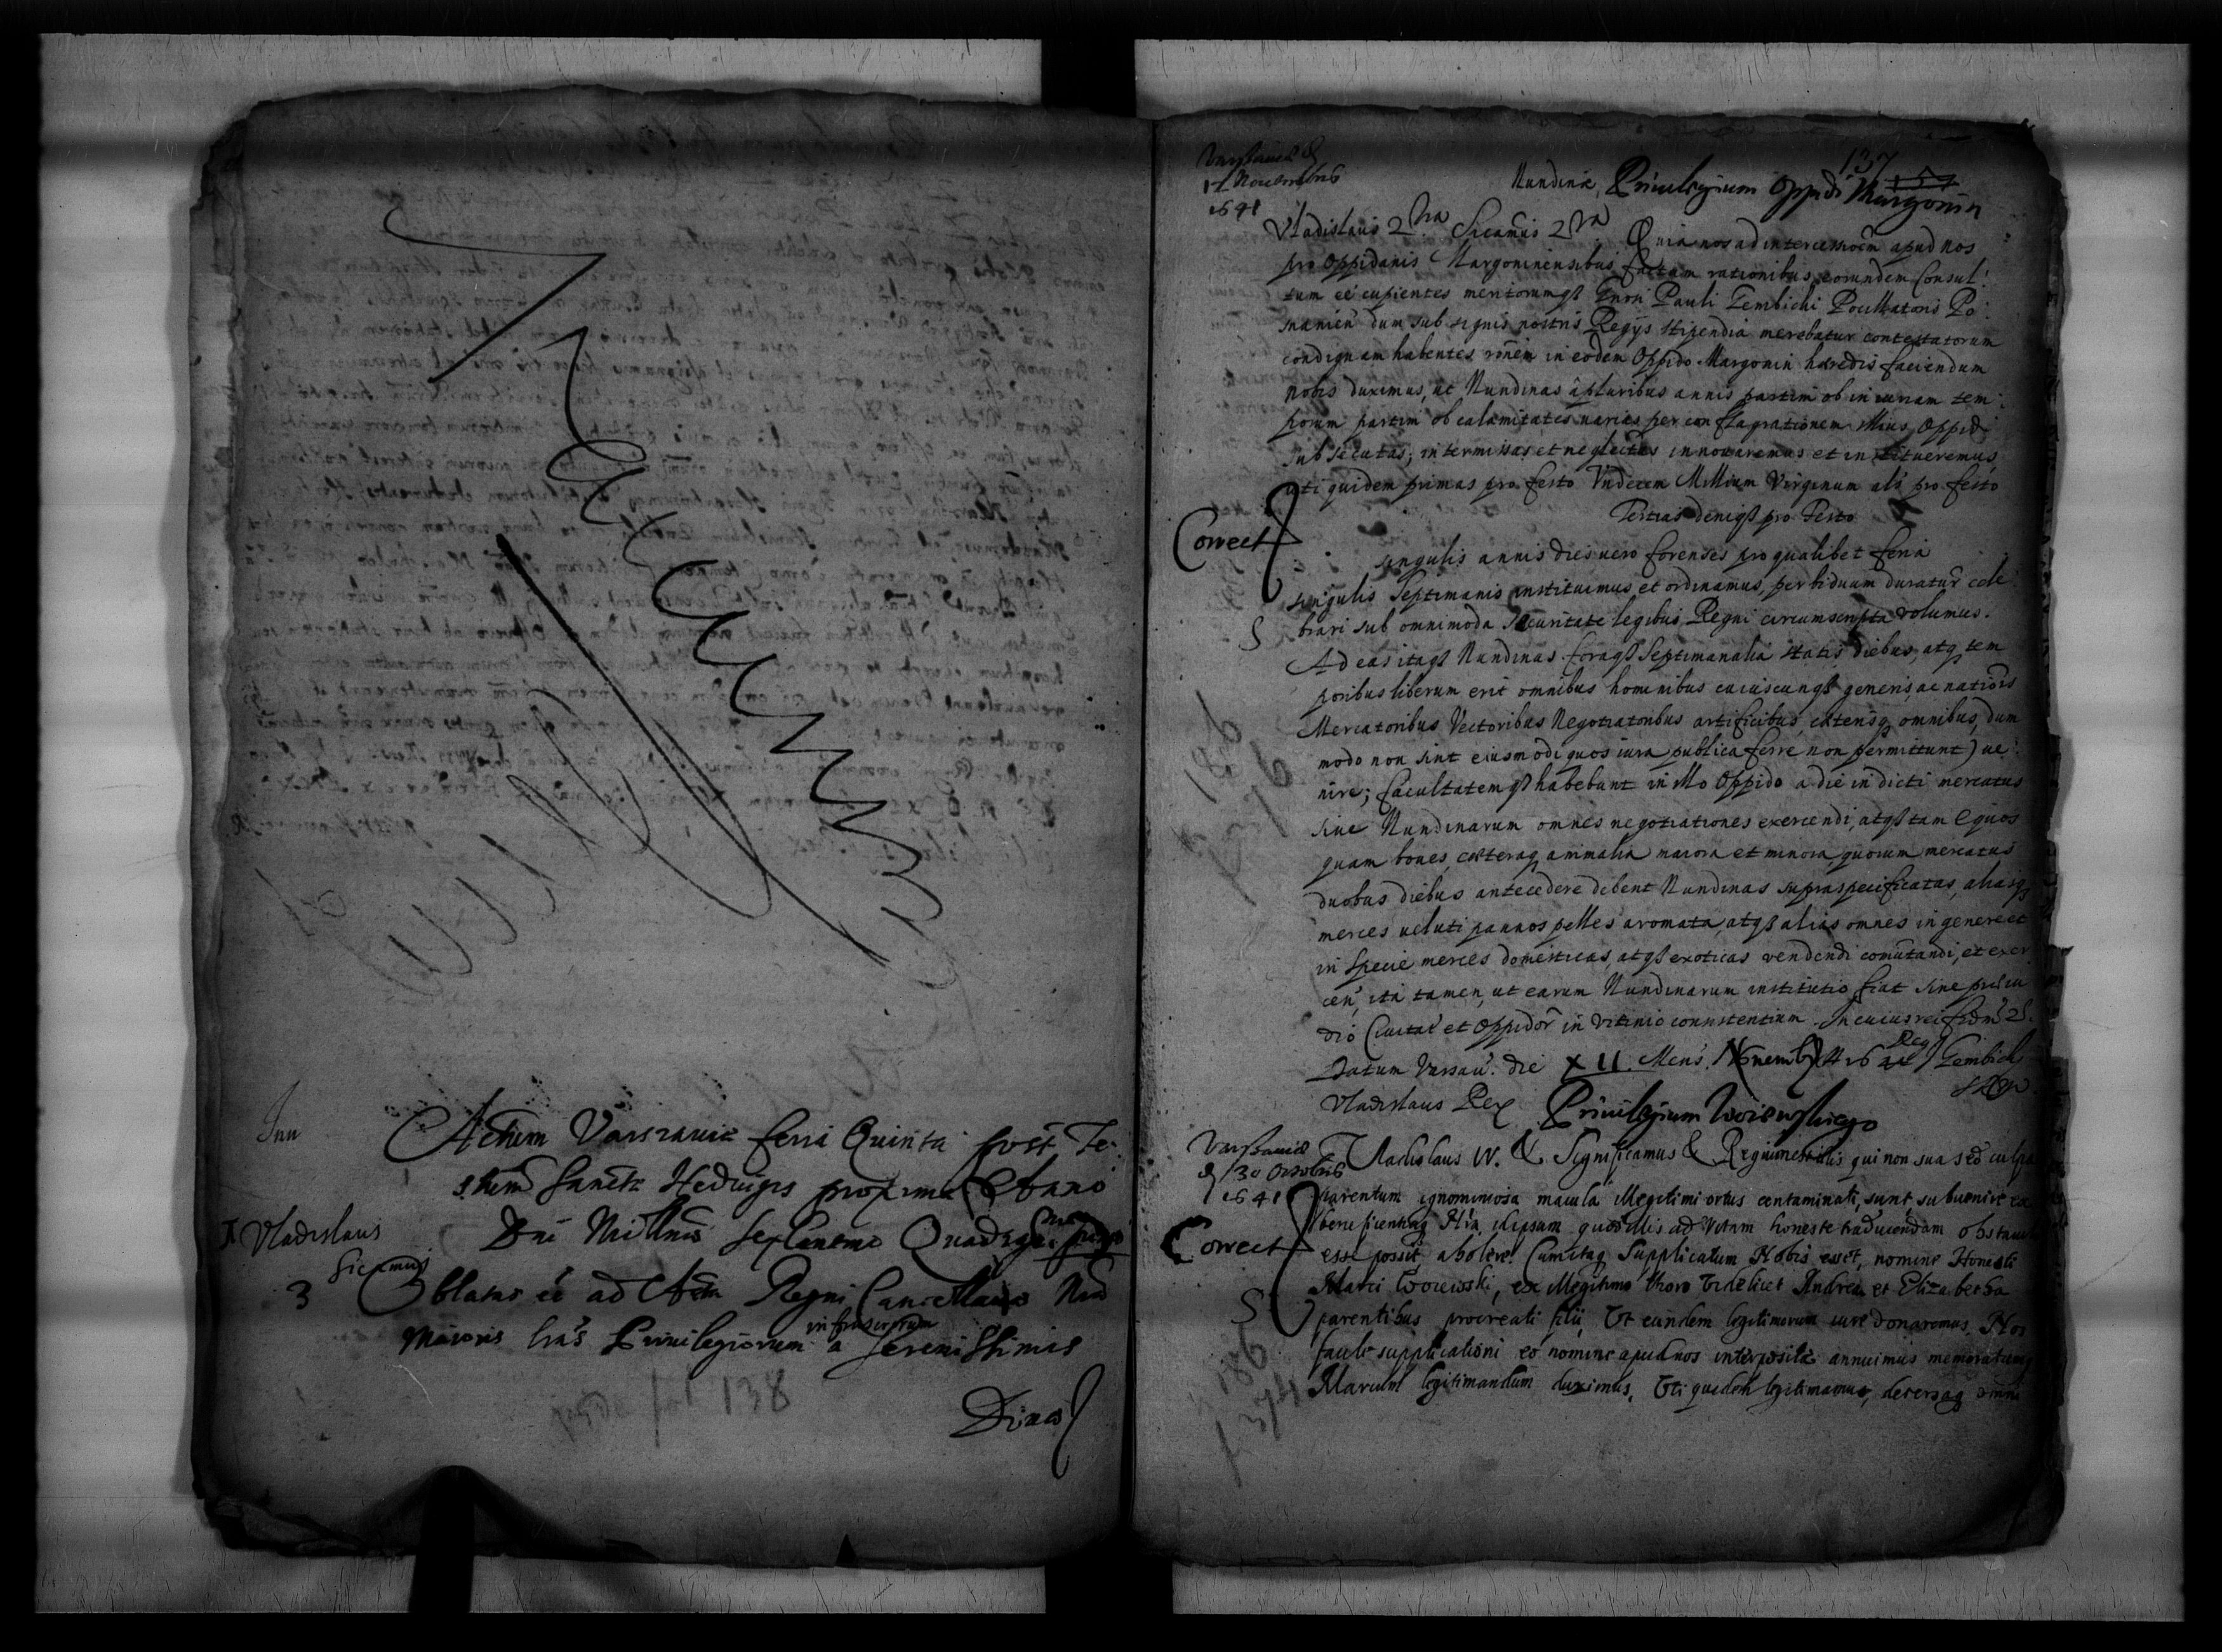 Vacuum
Inn
Actum Varszaviæ feria Quinta post Fe-
stum Sanctæ Hedvigis proxima Anno
Vladislaus
Dni Millmo Sexcentmo Quadragmo primo
Sicamus
3
Oblatæ ad Acta Regni Cancellariæ
infrascriptum
Maioris Privilegiorum a Serenissimis
Divis
138
137
Varssaviæ d
17 Novembris
1641
Nundinæ Privilegium Oppidi Margonin
Vladislaus 2tra Sicamus 2tra Quia nos ad intercessioem apud nos
pro Oppidanis Margoninensibus factam rationibus eorundem Consul:
tum eē cupientes meritorumqß Gnosi Pauli Gembicki Pocillatoris Po:
snanien dum sub signis nostris Regijs stipendia merebatur contestatorum
condignam habentes rōnem in eodem Oppido Margonin hæredis faciendum
nobis duximus, ut Nundinas â pluribus annis partim ob iniuriam tem:
porum partim ob calamitates varias per conflagrationem illius Oppidi
subsecutas; intermissas et neglectas innovaremus et institueremus,
uti quidem primas pro festo Undecem Millium Virginum als pro festo
Tertias deniqß pro Festo
Correct
singulis annis dies vero forenses pro qualibet feria
singulis Septimanis instituimus et ordinamus, per biduum duratur cele
S
brari sub omnimoda securitate legibus Regni circumscripta volumus.
Ad eas itaqß Nundinas foraqß Septimanalia statis diebus, atq tem
poribus liberum erit omnibus hominibus cuiuscunqß generis ac natiōis
Mercatoribus Vectoribus Negotiatoribus artificibus cæterisq omnibus, dum
modo non sint eiusmodi quos iura publica ferre non permittunt) ve:
nire; facultatemqß habebunt in illo Oppido a die indicti mercatus
sive Nundinarum omnes negotiationes exercendi, atqß tam Equos
quam boves, cæteraq animalia maiora et minora, quorum mercatus
duobus diebus antecedere debent Nundinas supraspecificatas, aliasqß
merces veluti pannos pelles aromata atqß alias omnes in genere et
in specie merces domesticas, atqß exoticas vendendi comutandi, et exer
cen, ita tamen, ut earum Nundinarum institutio fiat sine præiu
dio Civitat et Oppidor in vicinio consistentium. In cuius rei fidem 2.
Datum Varsav. die XII. Mens. Novemb 16 Gembick
Vladislaus Rex
Privilegium Woiewskiego
Varssaviæ
d 30 Octobris
1641
Vladislaus IV. & Significamus & Regium est illis qui non sua sed culpa
parentum ignominiosa macula illegitimi ortus contaminati, sunt, subvenire ea
beneficentiaq Nrā, ut ipsum quod illis ad vitam honeste traducendam obstaculo
Correct
esse possit, abolere. Cum itaq Supplicatum Nobis esset, nomine Honesti
Marci Woiewski, ex illegitimo thoro videlicet Andrea et Elizabetha
S
parentibus procreati filii, Ut eundem legitimorum iure donaremus. Nos
facile supplicationi eo nomine apud nos interposita annuimus memoratumq
Marcum legitimandum duximus, Uti quidem legitimamus, detersaq omni
186
f. 376
186
f. 374